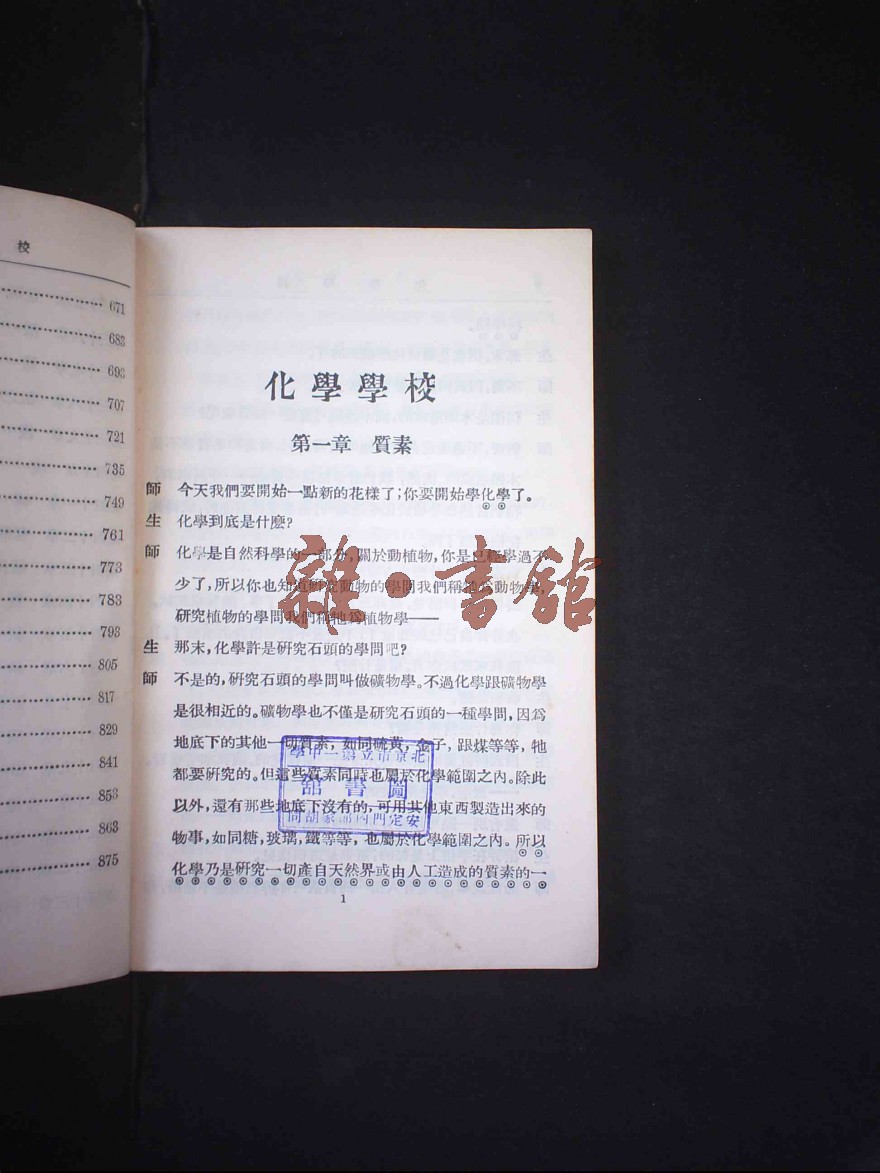 校
671
683
693
707
721
735
749
761
773
783
793
805
817
829
841
853
863
875
化學學校
第一章 質素
師 今天我們要開始一點新的花樣了;你要開始學化學了。
生 化學到底是什麼?
師 化學是自然科學的一部份,關於動植物,你是已經學過不
少了,所以你也知道研究動物的學問我們稱牠爲動物學,
研究植物的學問我們稱牠爲植物學——
生 那末,化學許是研究石頭的學問吧?
師 不是的,研究石頭的學問叫做礦物學。不過化學跟礦物學
是很相近的。礦物學也不僅是研究石頭的一種學問,因爲
地底下的其他一切質素,如同硫黃,金子,跟煤等等,牠
都要研究的。但這些質素同時也屬於化學範圍之內。除此
以外,還有那些地底下沒有的,可用其他東西製造出來的
物事,如同糖,玻璃,鐵等等,也屬於化學範圍之內。所以
化學乃是研究一切產自天然界或由人工造成的質素的一
1
雜·書舘
北京市立第一中學
圖書舘
安定門內郎家胡同